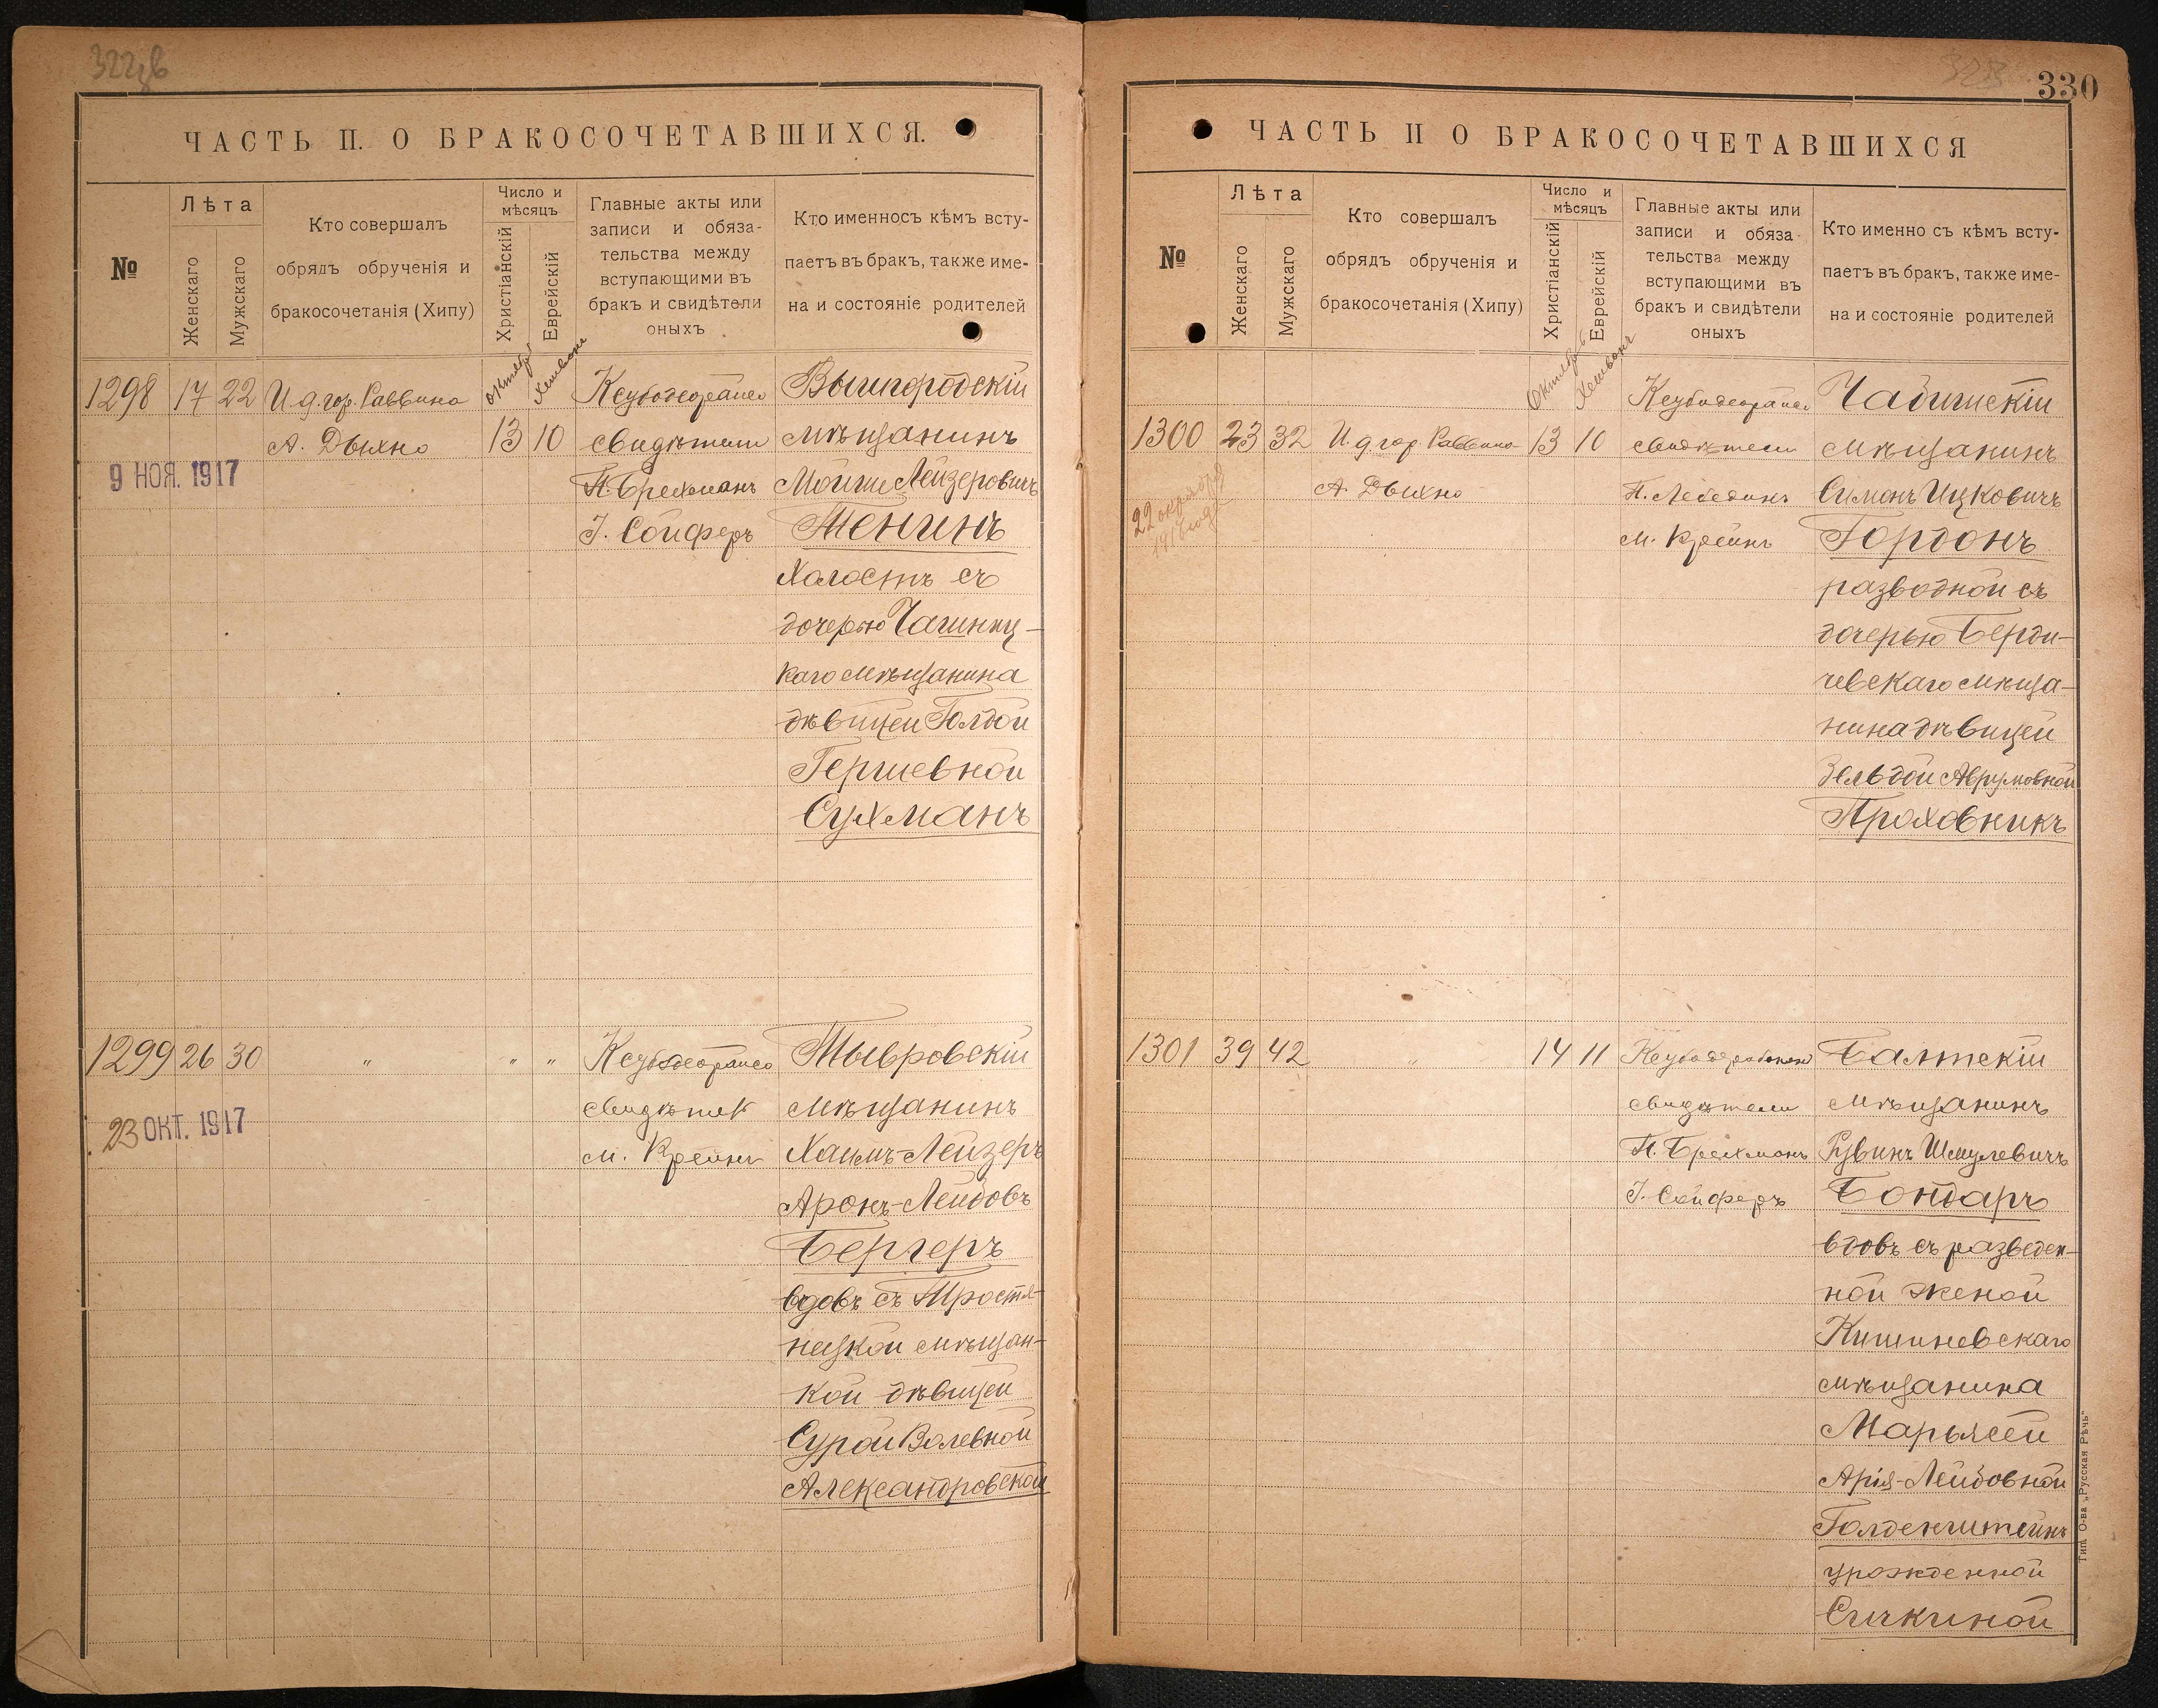 330
ЧАСТЬ II. О БРАКОСОЧЕТАВШИХСЯ.
№
Лѣта
Женскаго
Мужскаго
Кто совершалъ
обрядъ обрученія и
бракосочетанія (Хипу)
Число и
мѣсяцъ
Христіанскій
Еврейскій
Главные акты или
записи и обяза-
тельства между
вступающими въ
бракъ и свидѣтели
оныхъ
Кто именносъ кѣмъ всту-
паетъ въ бракъ, также име-
на и состояніе родителей
1298 17 22 И д. гор. Раввина
А. Дыхно
Октябрь
Хешвонъ
13 10
9 НОЯ. 1917
свидѣтели
П. Брехманъ
І. Сойферъ
Вышгородскій
мѣщанинъ
Мойше Лейзеровичъ
Тенинъ
Холостъ съ
дочерью
каго мѣщанина
дѣвицей Голдой
Гершевной
Сухманъ
1299 26 30 " " "
23 ОКТ. 1917
м. Крейнъ
Тывровскій
мѣщанинъ
Хаимъ-Лейзеръ
Аронъ-Лейбовъ
Бергеръ
вдовъ съ Тростя-
нецкой мѣщан-
кой дѣвицей
Сурой Волевной
Александровской
ЧАСТЬ II О БРАКОСОЧЕТАВШИХСЯ
№
Лѣта
Женскаго
Мужскаго
Кто совершалъ
обрядъ обрученія и
бракосочетанія (Хипу)
Число и
мѣсяцъ
Христіанскій
Еврейскій
Главные акты или
записи и обяза-
тельства между
вступающими въ
бракъ и свидѣтели
оныхъ
Кто именно съ кѣмъ всту-
паетъ въ бракъ, также име-
на и состояніе родителей
1300 23 32 И. д гор. Раввина
А Дыхно
Октябрь
Хешвонъ
13 10
22 октября
свидѣтели
П. Лебединъ
м. Крейнъ
мѣщанинъ
Симонъ Ицковичъ
Гордонъ
разводной съ
дочерью Берди-
чевскаго мѣща-
нина дѣвицей
Зельдой Аврумовной
Проховникъ
1301 39 42 " 14 11
свидѣтели
П. Брехманъ
І. Сойферъ
Балтскій
мѣщанинъ
Рувинъ Шмулевичъ
Бондаръ
вдовъ съ разведен-
ной женой
Кишиневскаго
мѣщанина
Марьясей
Арія-Лейбовной
Голденштейнъ
урожденной
Сичкиной
Тип. О-ва „Русская Рѣчь"